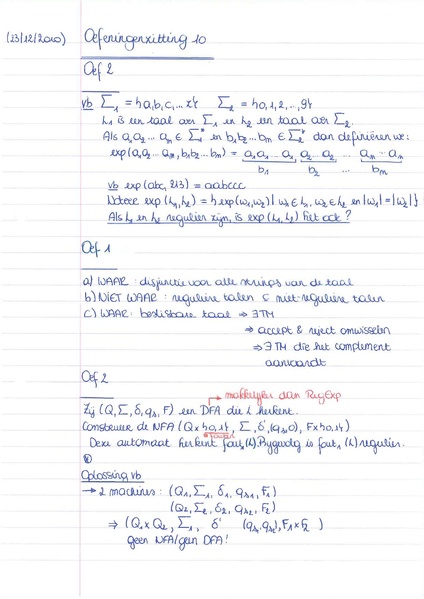 (23/12/2010) Oefeningenzitting 10
Oef 2
vb Σ₁ = {a,b,c,...x} Σ₂ = {0,1,2,...,9}
L₁ is een taal over Σ₁ en L₂ een taal over Σ₂.
Als a₁a₂...aₙ ∈ Σ₁* en b₁b₂...bₘ ∈ Σ₂* dan definiëren we:
exp(a₁a₂...aₙ, b₁b₂...bₘ) = a₁a₁...a₁ a₂...a₂ ... aₘ...aₘ
b₁ b₂ bₘ
vb exp(abc, 213) = aabccc
Notere exp(L₁,L₂) = {exp(w₁,w₂) | w₁∈L₁, w₂∈L₂ en |w₁|=|w₂|}
Als L₁ en L₂ regulier zijn, is exp(L₁,L₂) het ook?
Oef 1
a) WAAR: disjunctie voor alle strings van de taal
b) NIET WAAR: reguliere talen ⊆ niet-reguliere talen
c) WAAR: beslisbare taal ⇒ ∃TM
⇒ accept & reject omwisselen
⇒ ∃ TM die het complement
aanvaardt
Oef 2
→ makkelijker dan RegExp
Zij (Q, Σ, δ, qₛ, F) een DFA die L herkent.
Construeer de NFA (Q×{0,1}, Σ, δ', (qₛ,0), F×{0,1})
fouten
Deze automaat herkent fout₁(L). Bijgevolg is fout₁(L) regulier.
Oplossing vb
→ 2 machines: (Q₁, Σ₁, δ₁, qₛ₁, F₁)
(Q₂, Σ₂, δ₂, qₛ₂, F₂)
⇒ (Q₁×Q₂, Σ₁, δ' (qₛ₁,qₛ₂), F₁×F₂)
geen NFA/geen DFA!